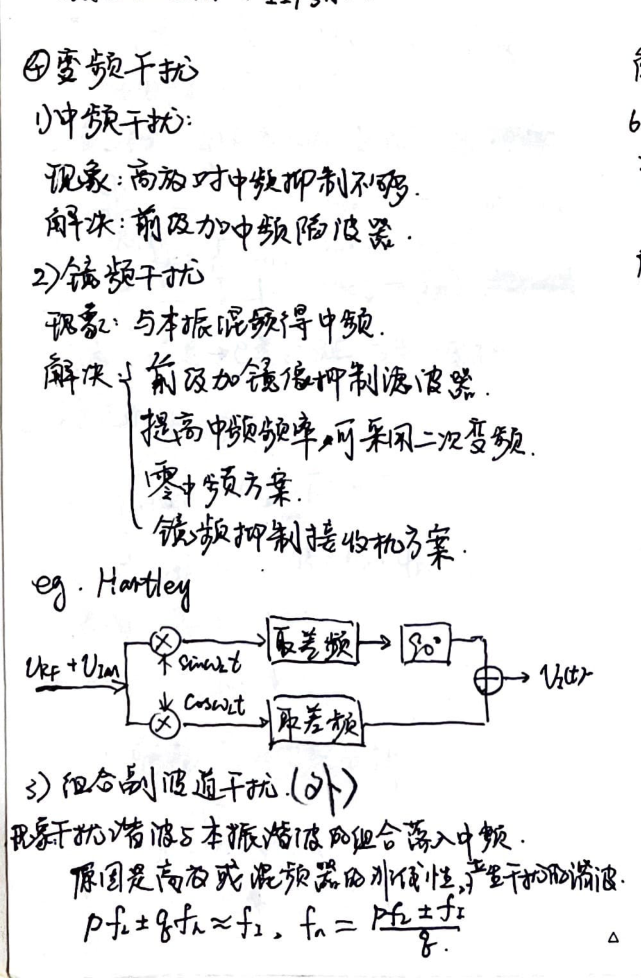 ④变频干扰
1)中频干扰:
现象:高放对中频抑制不够.
解决:前级加中频陷波器.
2)镜频干扰
现象:与本振混频得中频.
解决{前级加镜像抑制滤波器.
提高中频频率,可采用二次变频.
零中频方案.
镜频抑制接收机方案.
eg. Hartley
取差频 90°
U_RF+U_IM sinω_Lt U_I(t)
cosω_Lt
取差频
3)组合副波道干扰.(外)
现象干扰谐波与本振谐波的组合落入中频.
原因是高放或混频器的非线性,产生干扰的谐波.
pf_L±qf_n≈f_I, f_n=\frac{pf_L±f_I}{q}.